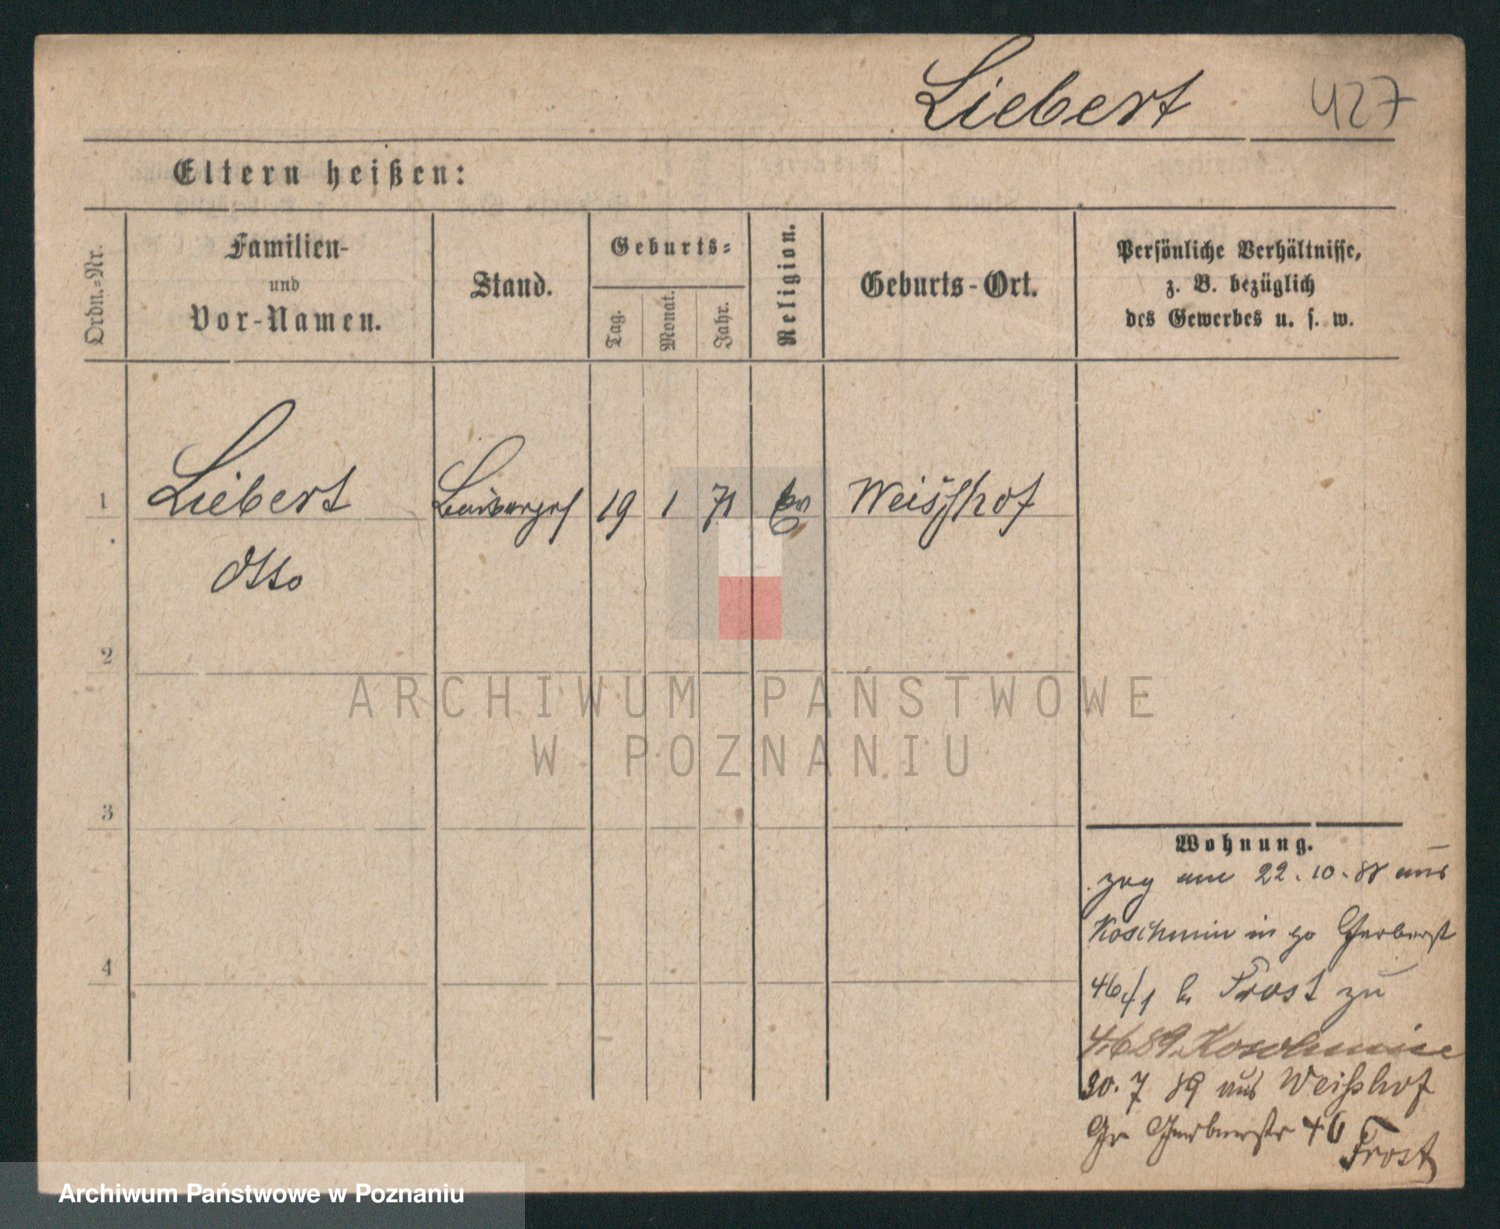 Liebert 427
Eltern heißen:
Ordn.-Nr.
Familien-
und
Vor-Namen.
Stand.
Geburts-
Tag.
Monat.
Jahr.
Religion.
Geburts-Ort.
Persönliche Verhältnisse,
z. B. bezüglich
des Gewerbes u. s. w.
1 Liebert 19 1 71 Ev Weißhof
Otto
2
ARCHIWUM PAŃSTWOWE
W POZNANIU
3
4
Wohnung.
zog am 22.10.88 aus
Koschmin in Gerberst
46/1 b Frost zu
4.6 89 Koschmin
30.7 89 aus Weißhof
Gr Gerberstr 46
Frost
Archiwum Państwowe w Poznaniu